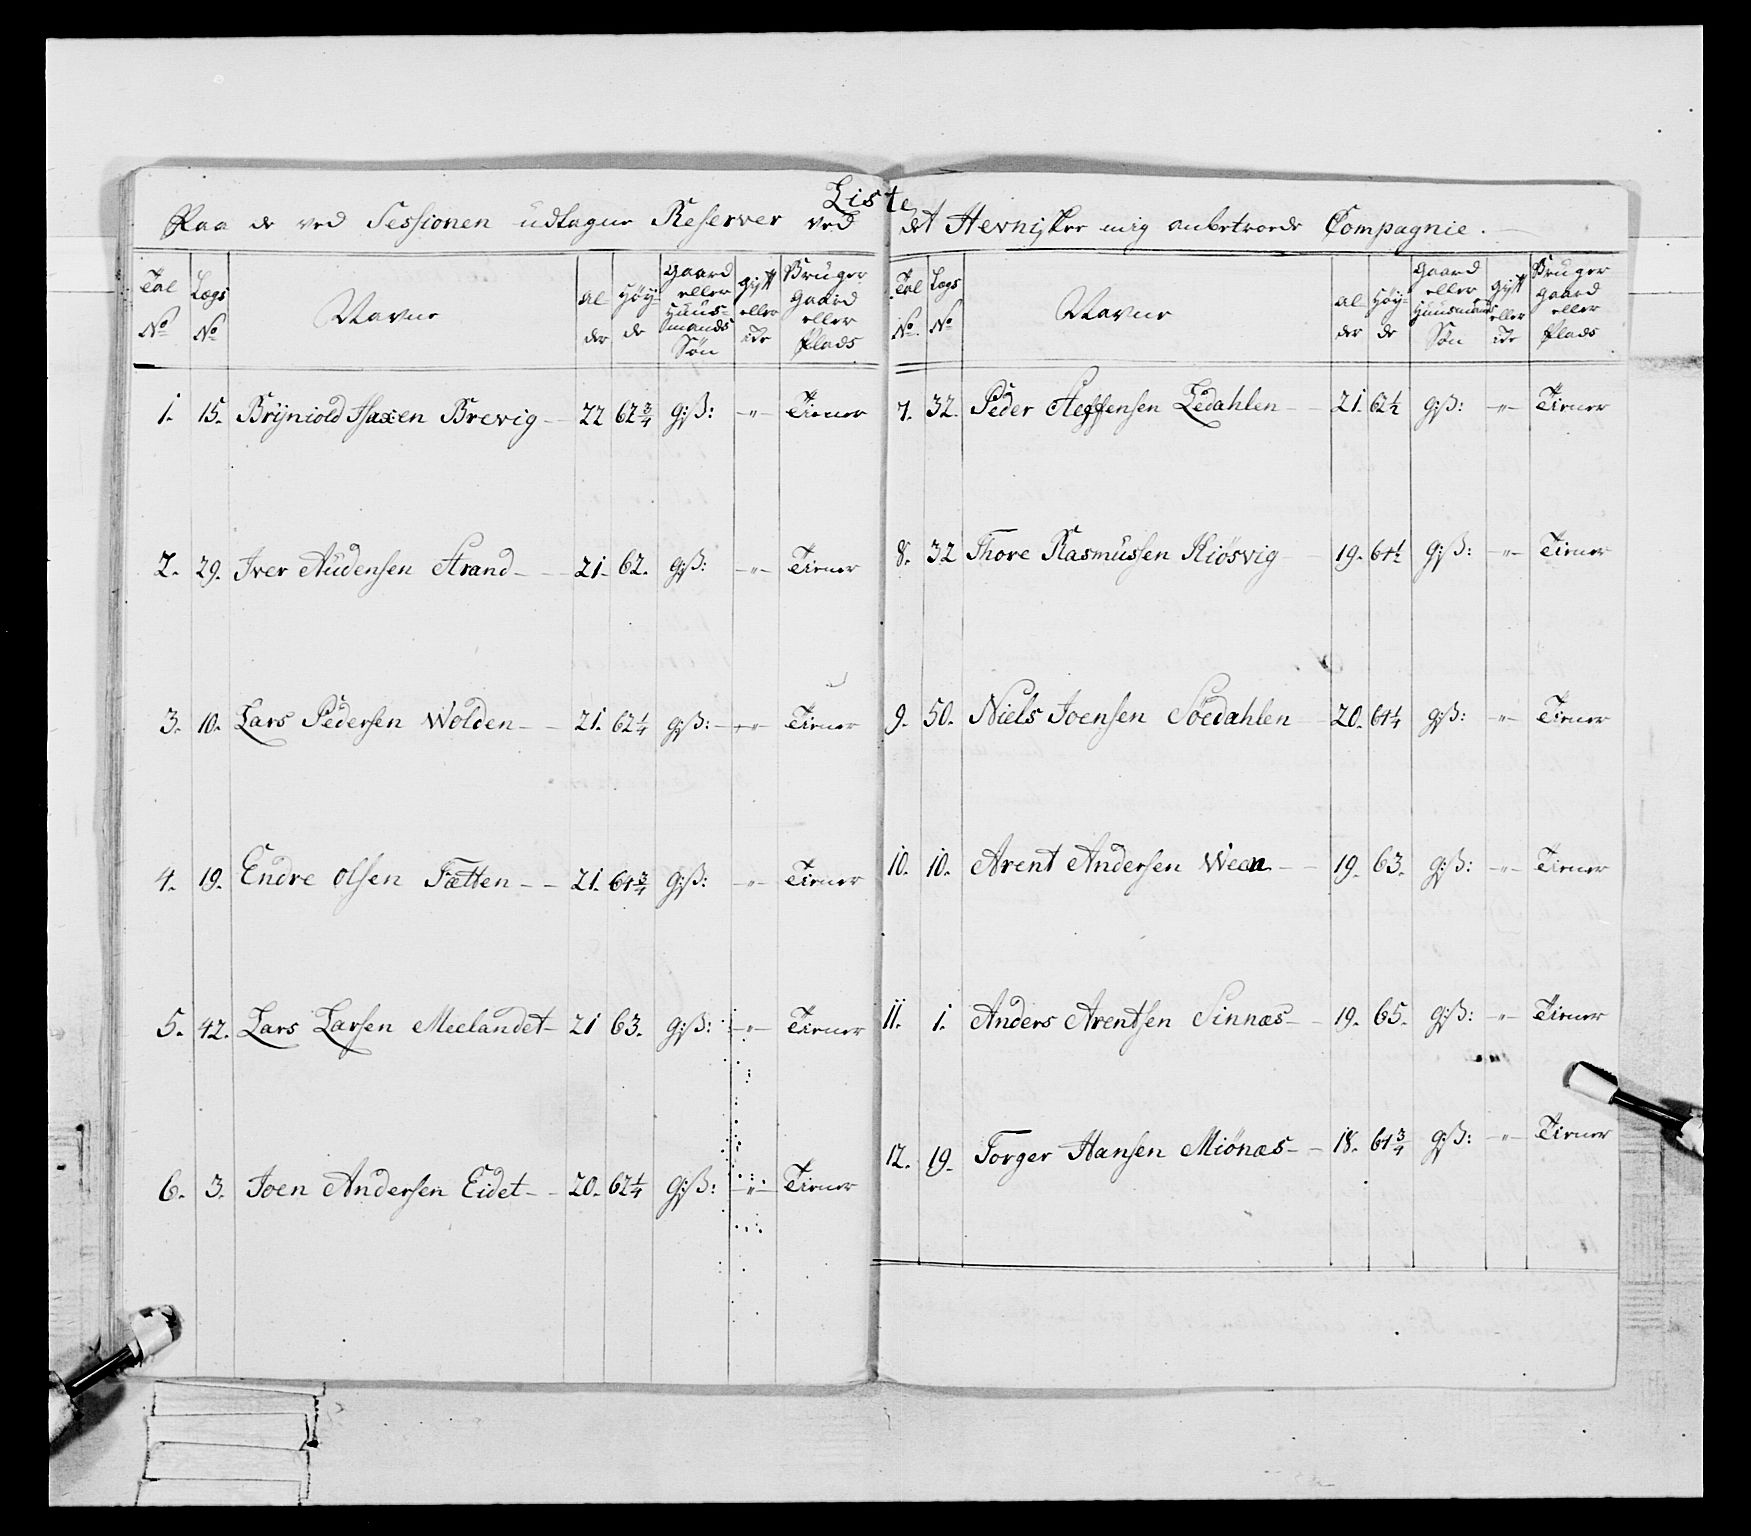 Liste
Paa de ved Sessionen udtagne Reserver ved det Hevniske mig anbetroede Compagnie.
Tal No | Lægs No | Navne | Al-der | Höy-de | Gaard eller Huus-mands Sön | Gift eller Ei | Bruger Gaard eller Plads
1. 15. Bryniold Isaxen Brevig 22 62 3/4 g:ß: -"- Tiener
2. 29. Iver Audensen Strand 21. 62. g:ß: -"- Tiener
3. 10. Lars Pedersen Wolden 21. 62 1/4 g:ß: -"- Tiener
4. 19. Endre Olsen Fætten 21. 61 3/4 g:ß: -"- Tiener
5. 42. Lars Larsen Meelandet 21 63. g:ß: -"- Tiener
6. 3. Joen Andersen Eidet 20. 62 1/4 g:ß: -"- Tiener
Tal No. | Lægs No | Navne | Al-der | Höy-de | Gaard eller Huusmands Sön | Gift eller Ei | Bruger Gaard eller Plads
7. 32. Peder Steffensen Ledahlen 21. 62 1/2 g:ß: -"- Tiener
8. 32 Thore Rasmussen Kiösvig 19. 61 1/2 g:ß: -"- Tiener
9. 50. Niels Joensen Söedahlen 20. 61 1/4 g:ß: -"- Tiener
10. 10. Arent Andersen Ween 19. 63. g:ß: -"- Tiener
11. 1. Anders Arentsen Sinnæs 19. 65. g:ß: -"- Tiener
12. 19. Torger Hansen Miönæs 18. 61 3/4 g:ß: -"- Tiener